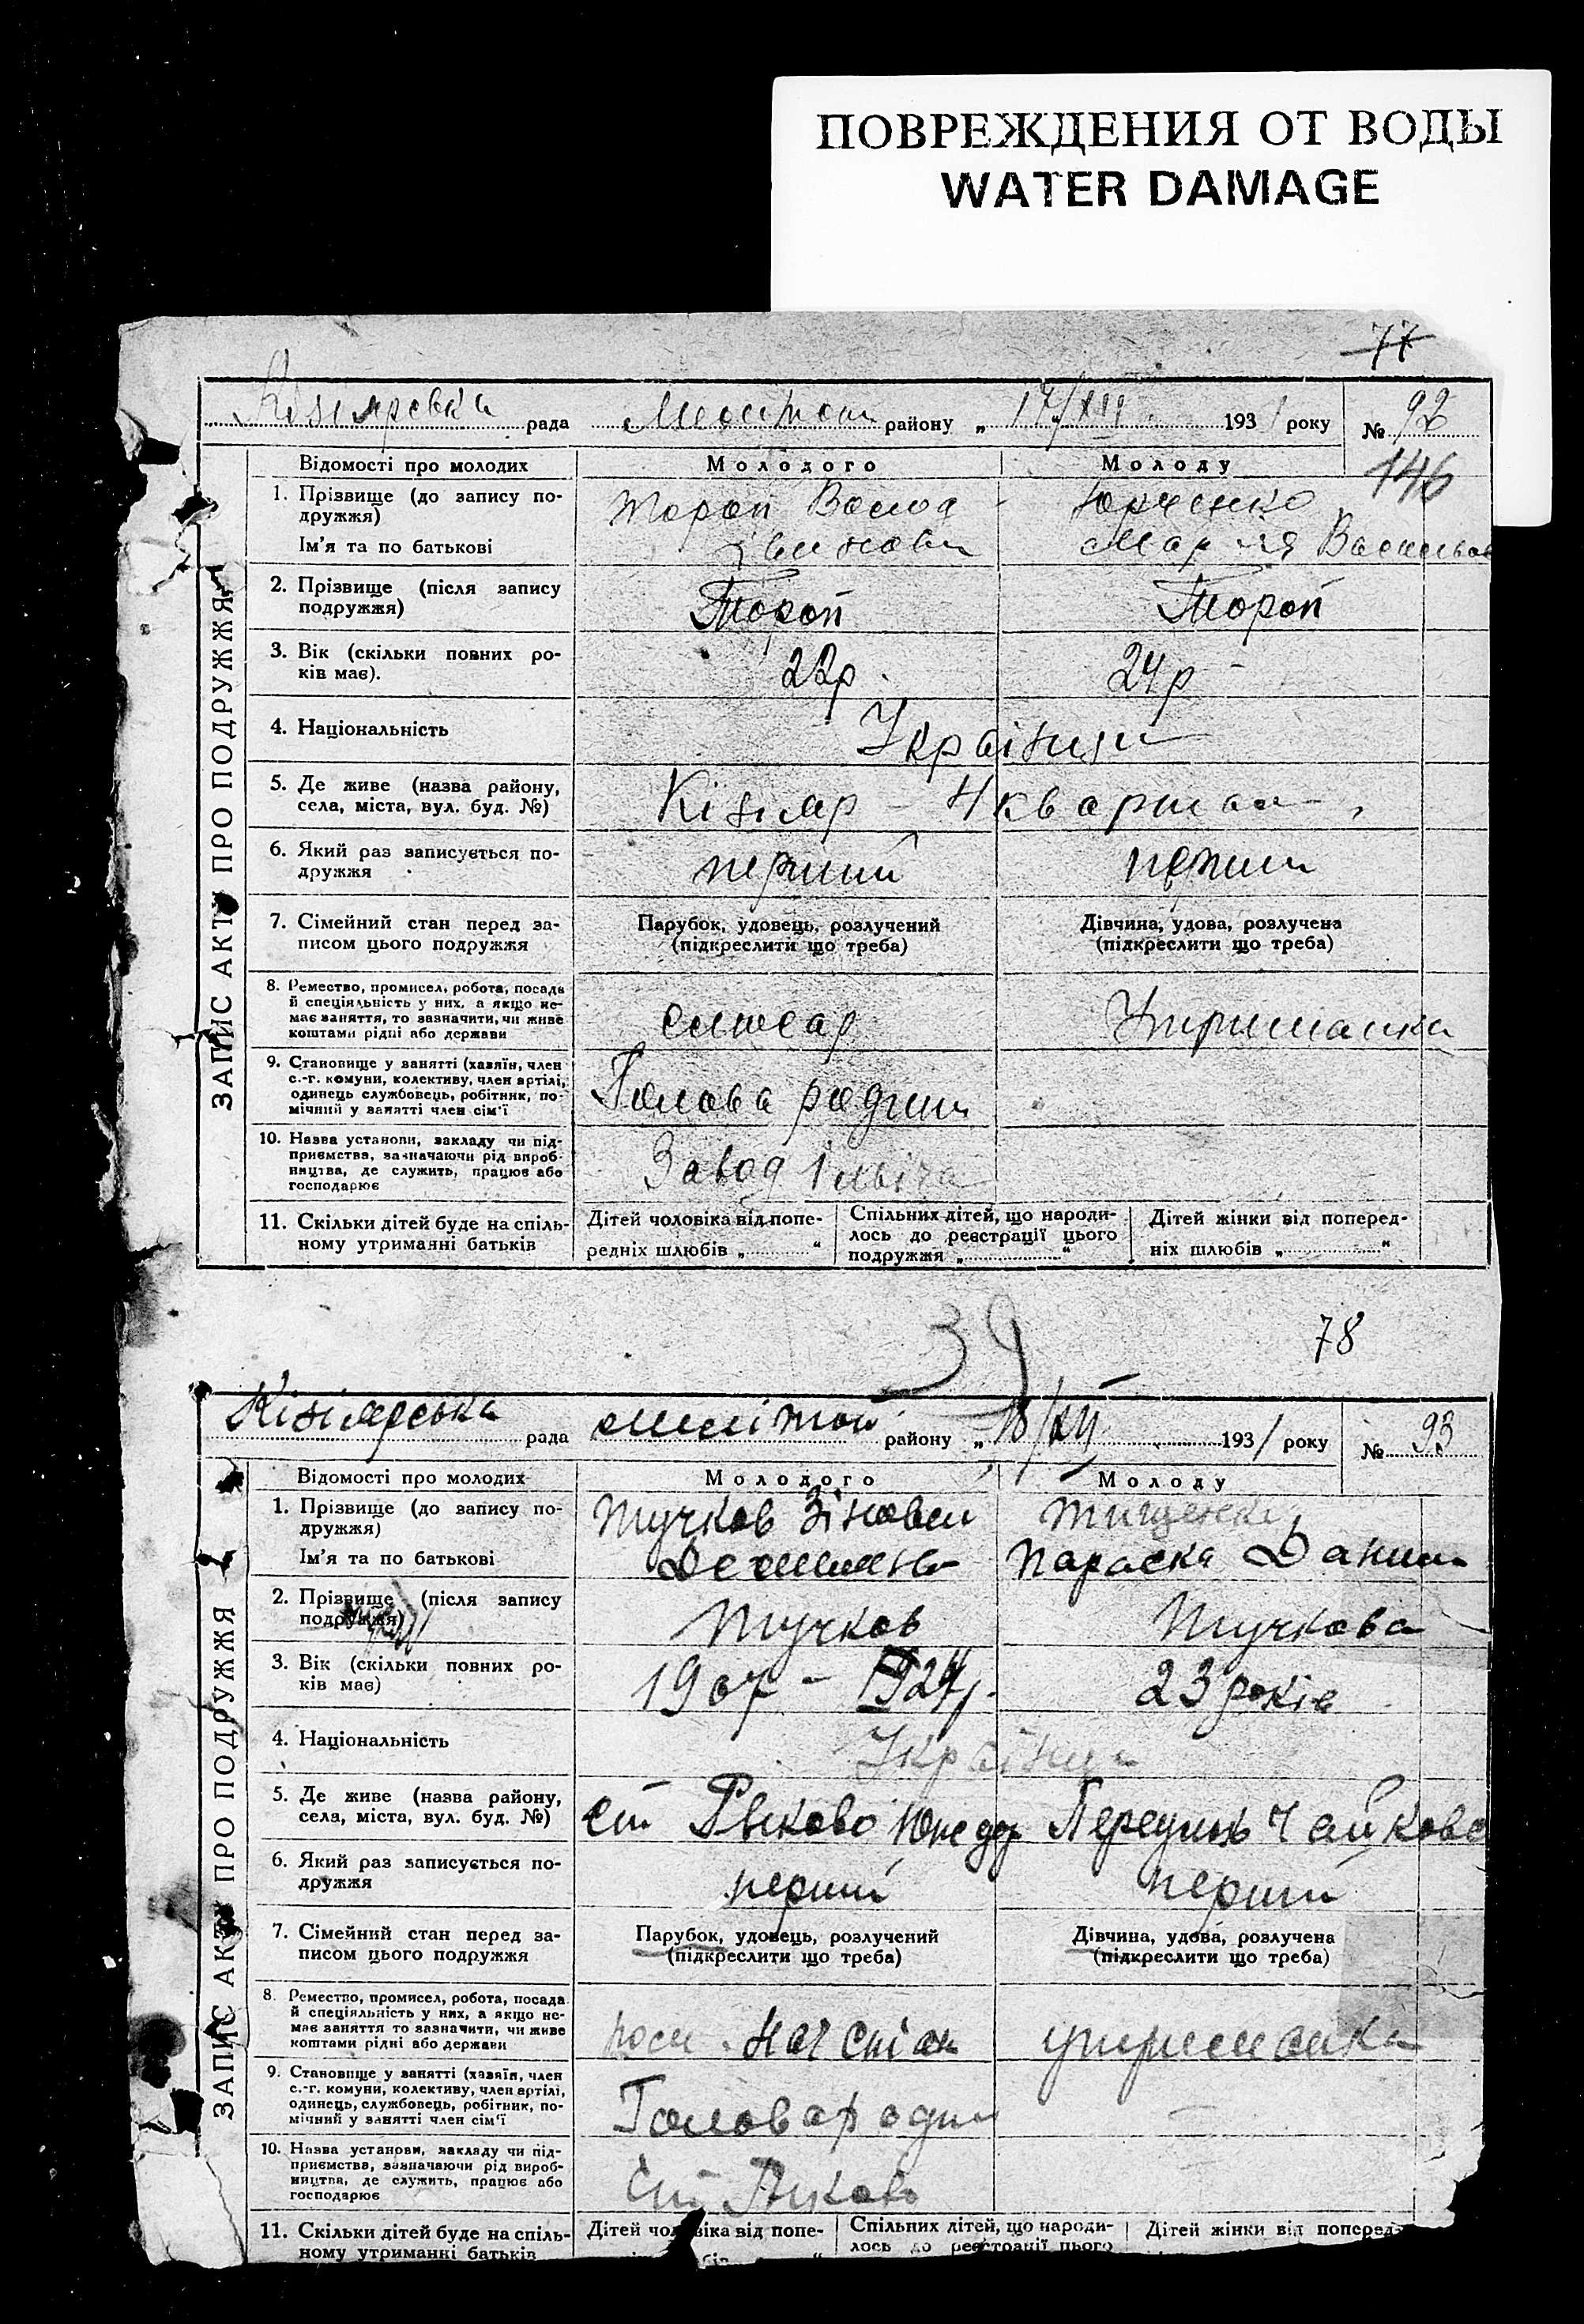 ПОВРЕЖДЕНИЯ ОТ ВОДЫ
WATER DAMAGE
77
рада району „ 17/XII 1931 року № 92
146
ЗАПИС АКТУ ПРО ПОДРУЖЖЯ
Відомості про молодих Молодого Молоду
1. Прізвище (до запису по-
дружжя) Тороп Юрченко
Ім'я та по батькові Марія
2. Прізвище (після запису
подружжя) Тороп Тороп
3. Вік (скільки повних ро-
ків має). 22р. 24р
4. Національність Українци
5. Де живе (назва району,
села, міста, вул. буд. №) Кізіяр - 4 квартал
6. Який раз записується по-
дружжя перший перший
7. Сімейний стан перед за-
писом цього подружжя
Парубок, удовець, розлучений
(підкреслити що треба)
Дівчина, удова, розлучена
(підкреслити що треба)
8. Ремество, промисел, робота, посада
й спеціяльність у них, а якщо не-
має заняття, то зазначити, чи живе
коштами рідні або держави
слюсар Утриманка
9. Становище у занятті (хазяїн, член
с.-г. комуни, колективу, член артілі,
одинець службовець, робітник, по-
мічний у занятті член сім'ї
Голова родини
10. Назва установи, закладу чи під-
приємства, зазначаючи рід вироб-
ництва, де служить, працює або
господарює
Завод Ільіча
11. Скільки дітей буде на спіль-
ному утриманні батьків
Дітей чоловіка від попе-
редніх шлюбів „ “
Спільних дітей, що народи-
лось до реєстрації цього
подружжя „ “
Дітей жінки від поперед-
ніх шлюбів „ “
39
78
Кізіярська рада району „ 18/XII 1931 року № 93
ЗАПИС АКТУ ПРО ПОДРУЖЖЯ
Відомості про молодих Молодого Молоду
1. Прізвище (до запису по-
дружжя) Тучков Тищенко
Ім'я та по батькові Параска Данил
2. Прізвище (після запису
подружжя) Тучков Тучкова
3. Вік (скільки повних ро-
ків має) 1907 - 23 років
4. Національність Українци
5. Де живе (назва району,
села, міста, вул. буд. №) ст
6. Який раз записується по-
дружжя перший перший
7. Сімейний стан перед за-
писом цього подружжя
Парубок, удовець, розлучений
(підкреслити що треба)
Дівчина, удова, розлучена
(підкреслити що треба)
8. Ремество, промисел, робота, посада
й спеціяльність у них, а якщо не-
має заняття то зазначити, чи живе
коштами рідні або держави
утриманка
9. Становище у занятті (хазяїн, член
с.-г. комуни, колективу, член артілі,
одинець, службовець, робітник, по-
мічний у занятті член сім'ї
Голова родин
10. Назва установи, закладу чи під-
приємства, зазначаючи рід вироб-
ництва, де служить, працює або
господарює
11. Скільки дітей буде на спіль-
ному утриманні батьків
Дітей чоловіка від попе-
Спільних дітей, що народи-
лось до реєстрації цього
Дітей жінки від поперед-